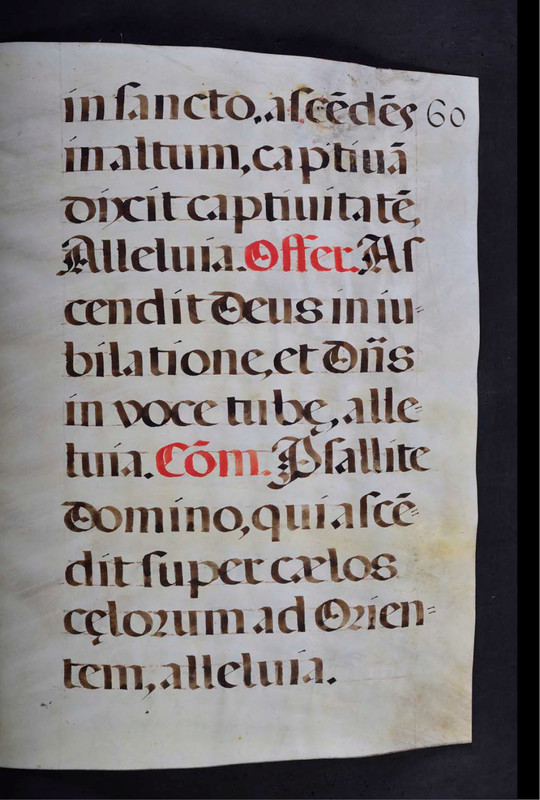 in ſancto, aſcēdēs 60
in altum, captiuā
dixit captiuitatē,
Alleluia. Offer. Aſ
cendit Deus in iu⸗
bilatione, et Dn̄s
in voce tubę, alle⸗
luia. Cōm. Pſallite
Domino, qui aſcē⸗
dit ſuper cælos
cęloꝛum ad Oꝛien⸗
tem, alleluia.